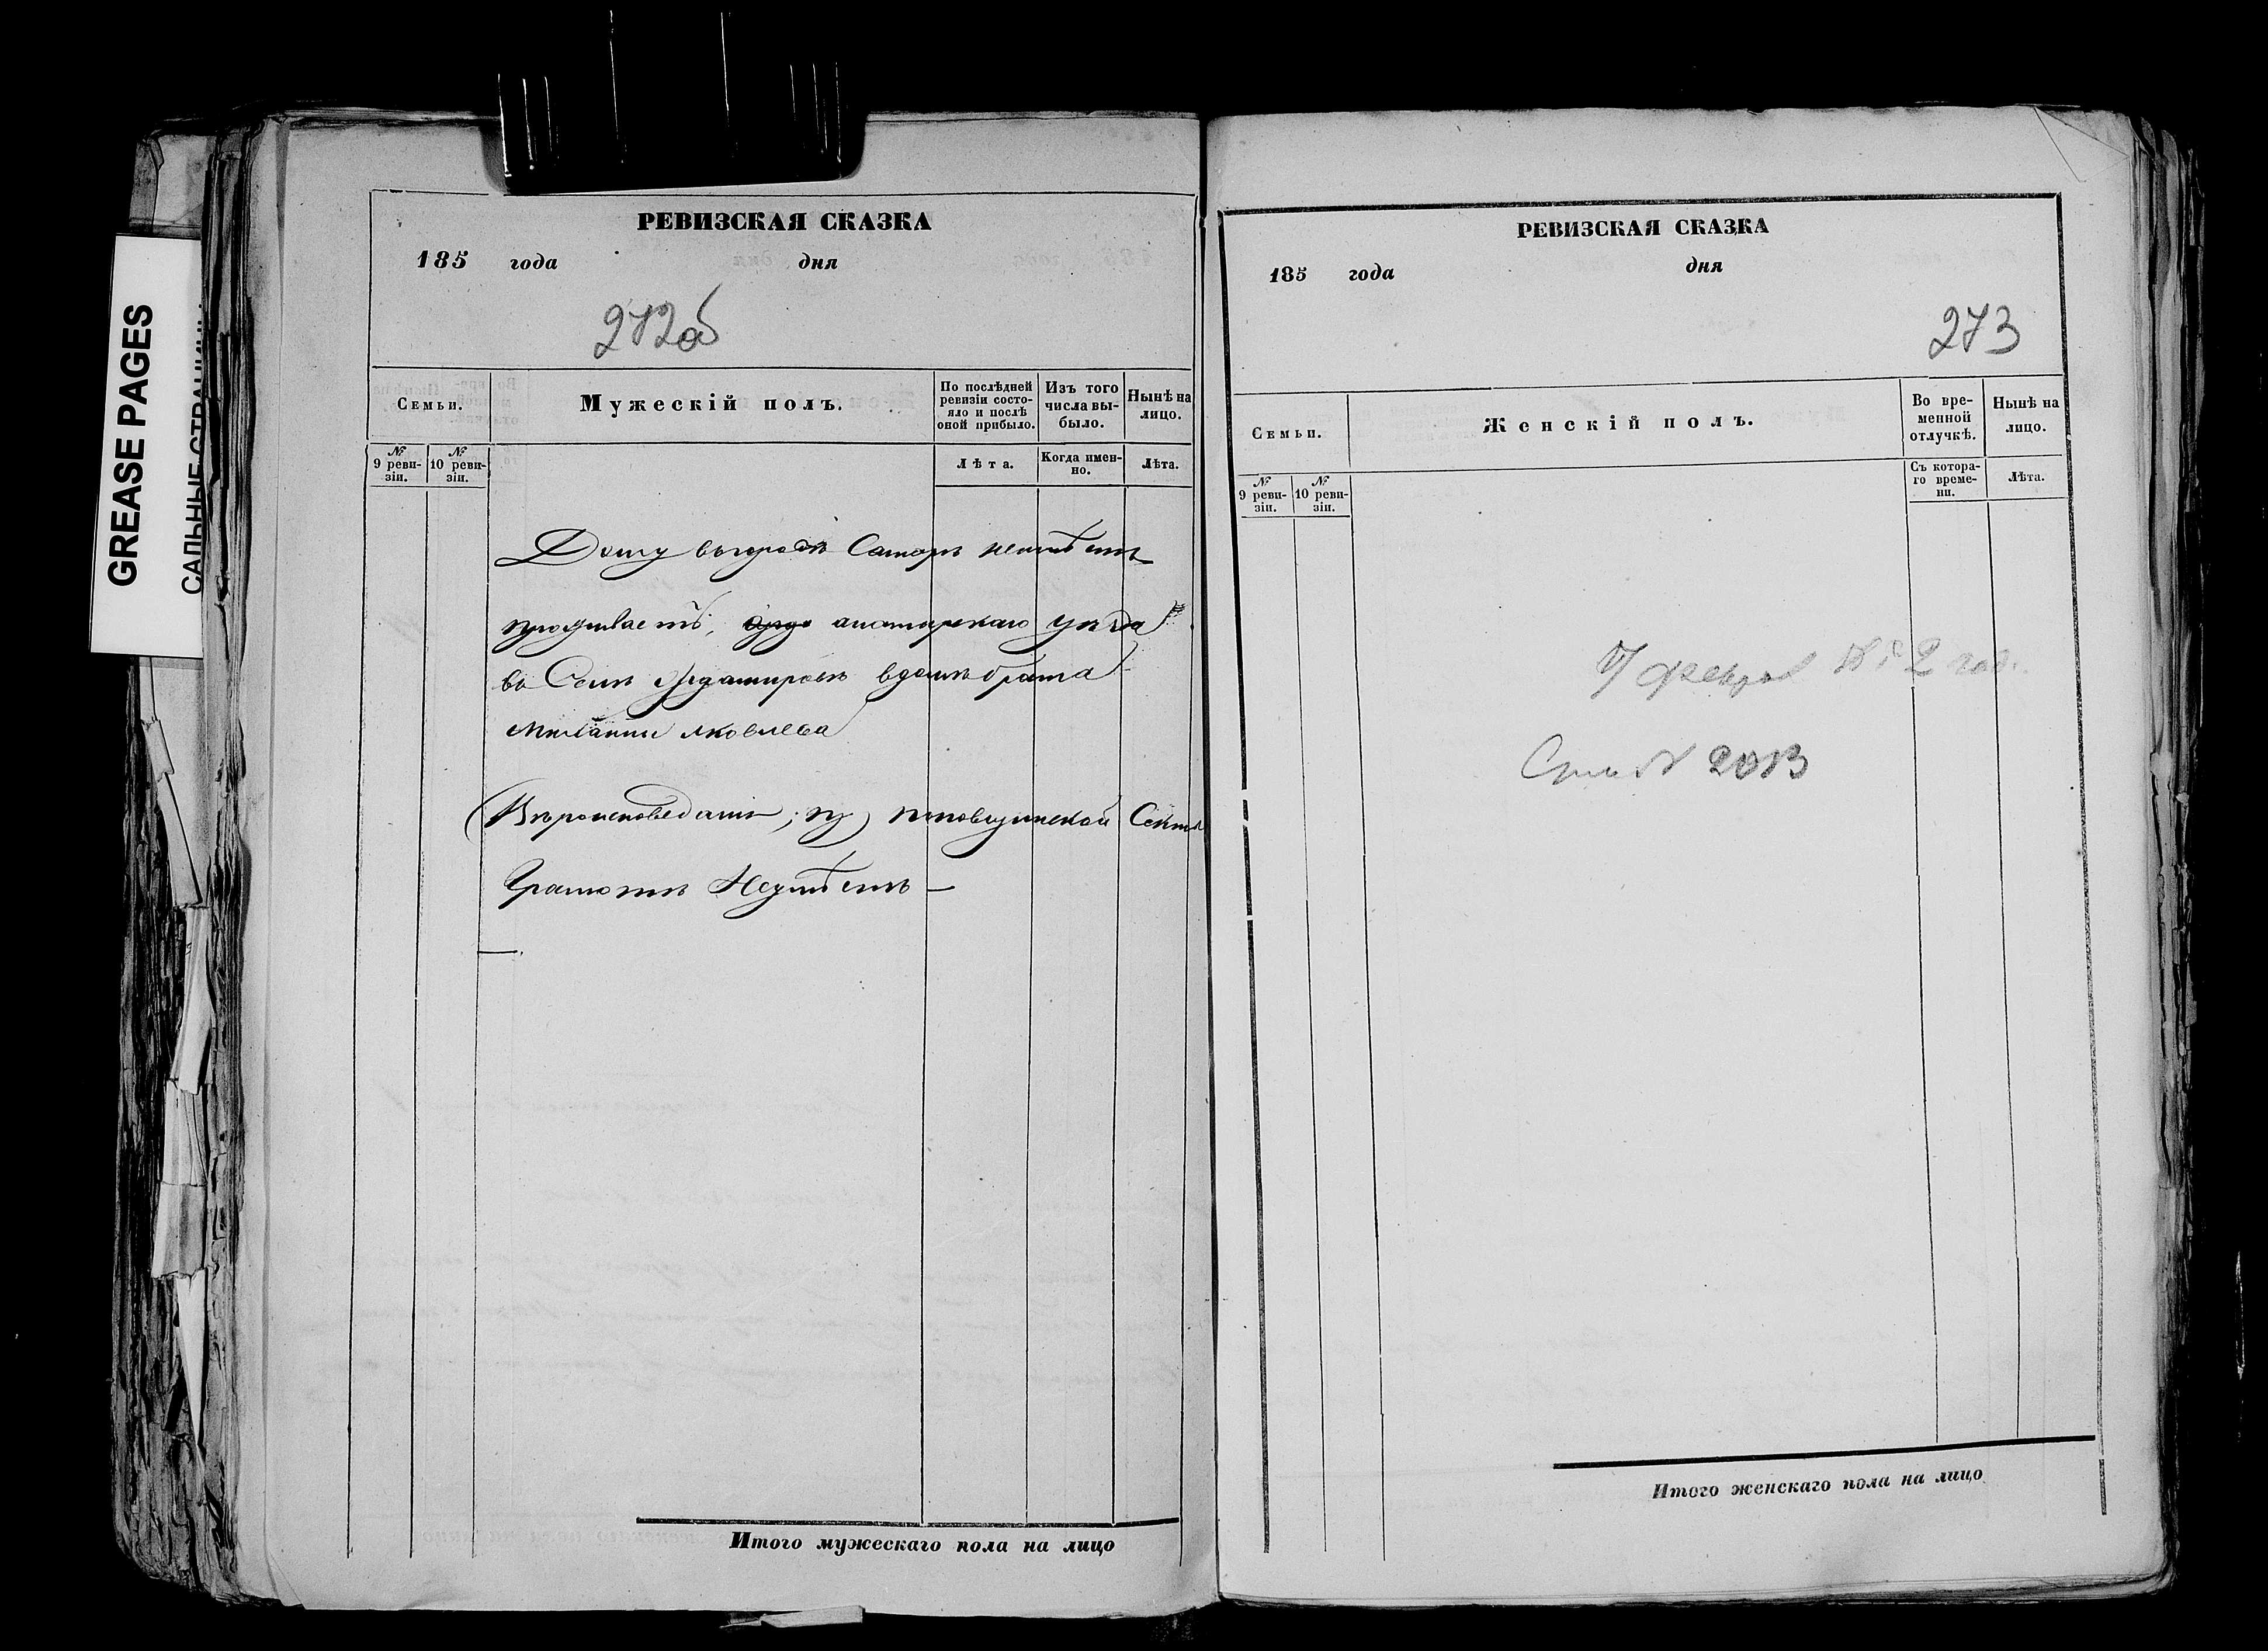 GREASE PAGES
САЛЬНЫЕ СТРАНИЦЫ
РЕВИЗСКАЯ СКАЗКА
185 года дня
272об
Семьи.
Мужескій полъ.
По послѣдней ревизіи состояло и послѣ оной прибыло.
Изъ того числа выбыло.
Нынѣ на лицо.
№ 9 ревизіи.
№ 10 ревизіи.
Лѣта.
Когда именно.
Лѣта.
Дому въ городѣ Самарѣ неимѣетъ
проживаетъ, уѣзда
въ Селѣ вдомѣ брата
Яковлева
Вѣроисповеданія, поповщинской Секты
Грамотѣ Неумѣетъ —
Итого мужескаго пола на лицо
РЕВИЗСКАЯ СКАЗКА
185 года дня
273
Семьи.
Женскій полъ.
Во временной отлучкѣ.
Нынѣ на лицо.
№ 9 ревизіи.
№ 10 ревизіи.
Съ котораго времени.
Лѣта.
№ 2013
Итого женскаго пола на лицо